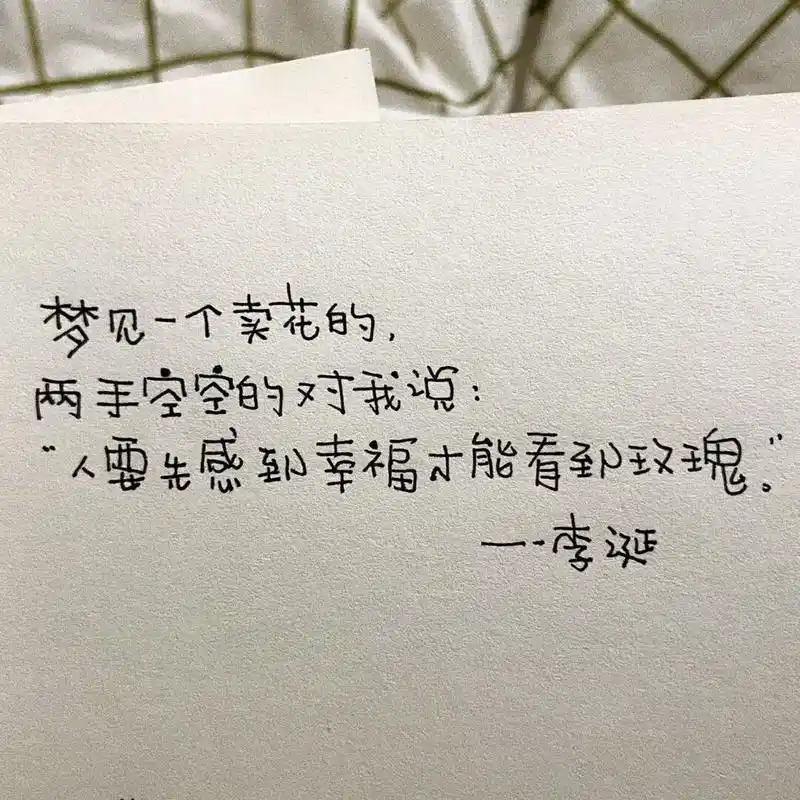 梦见一个卖花的,
两手空空的对我说:
“人要先感到幸福才能看到玫瑰。”
——李诞